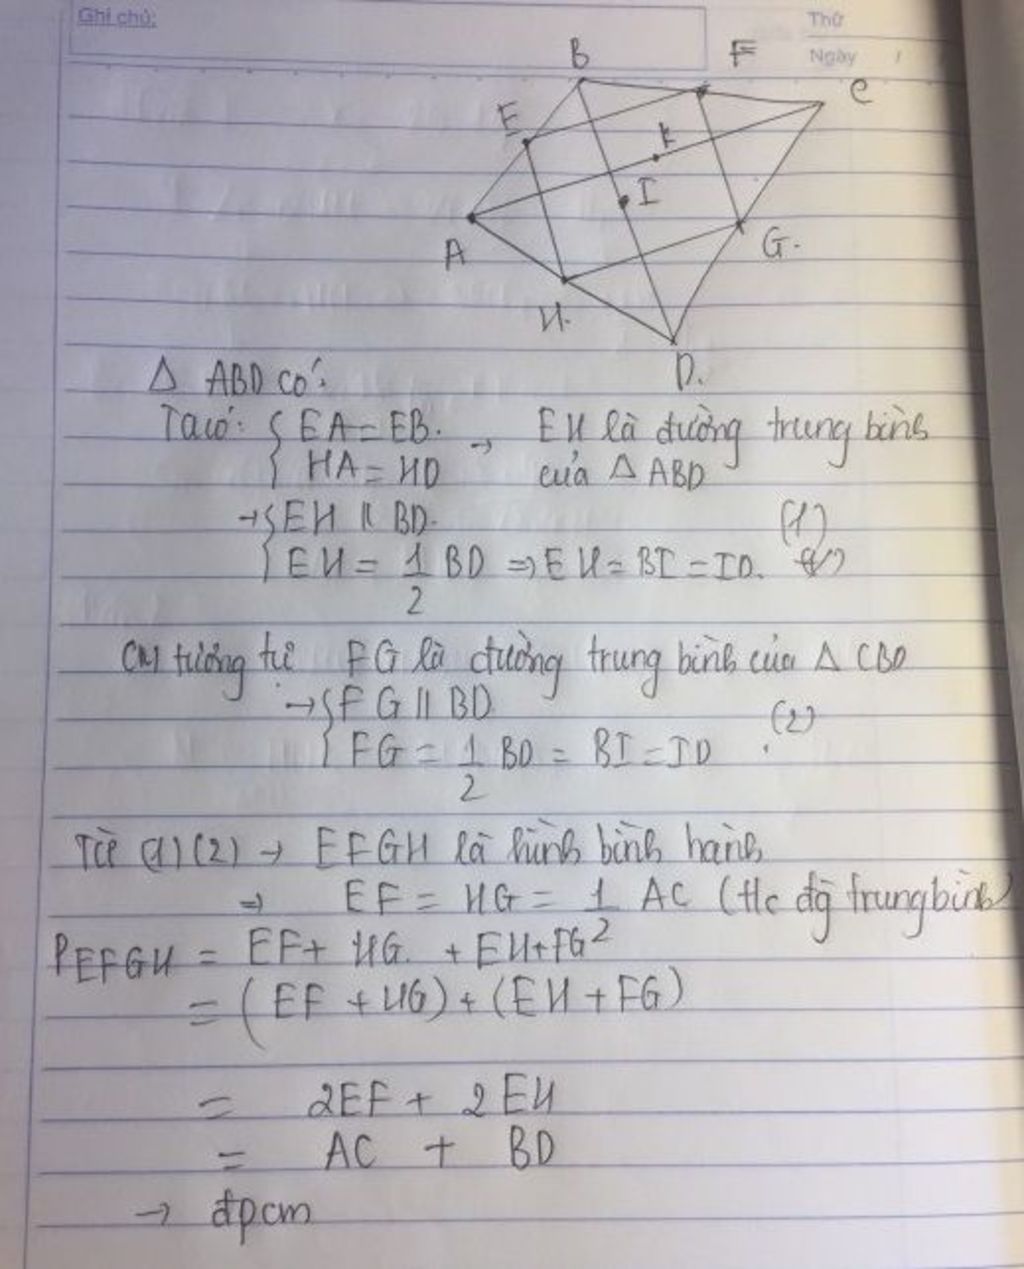 Ghi chú:
Thứ
Ngày /
B
F
C
E
K
I
A
G.
H.
D.
Δ ABD có:
Ta có: { EA = EB.
HA = HD
→ EH là đường trung bình
của Δ ABD
→ { EH ∥ BD.
(1)
EH = 1/2 BD ⇒ EH = BI = ID.
CM tương tự FG là đường trung bình của Δ CBD
→ { FG ∥ BD
(2)
FG = 1/2 BD = BI = ID
Từ (1) (2) → EFGH là hình bình hành
⇒ EF = HG = 1/2 AC (t/c đg trung bình)
P EFGH = EF + HG. + EH + FG
= (EF + HG) + (EH + FG)
= 2EF + 2EH
= AC + BD
→ đpcm